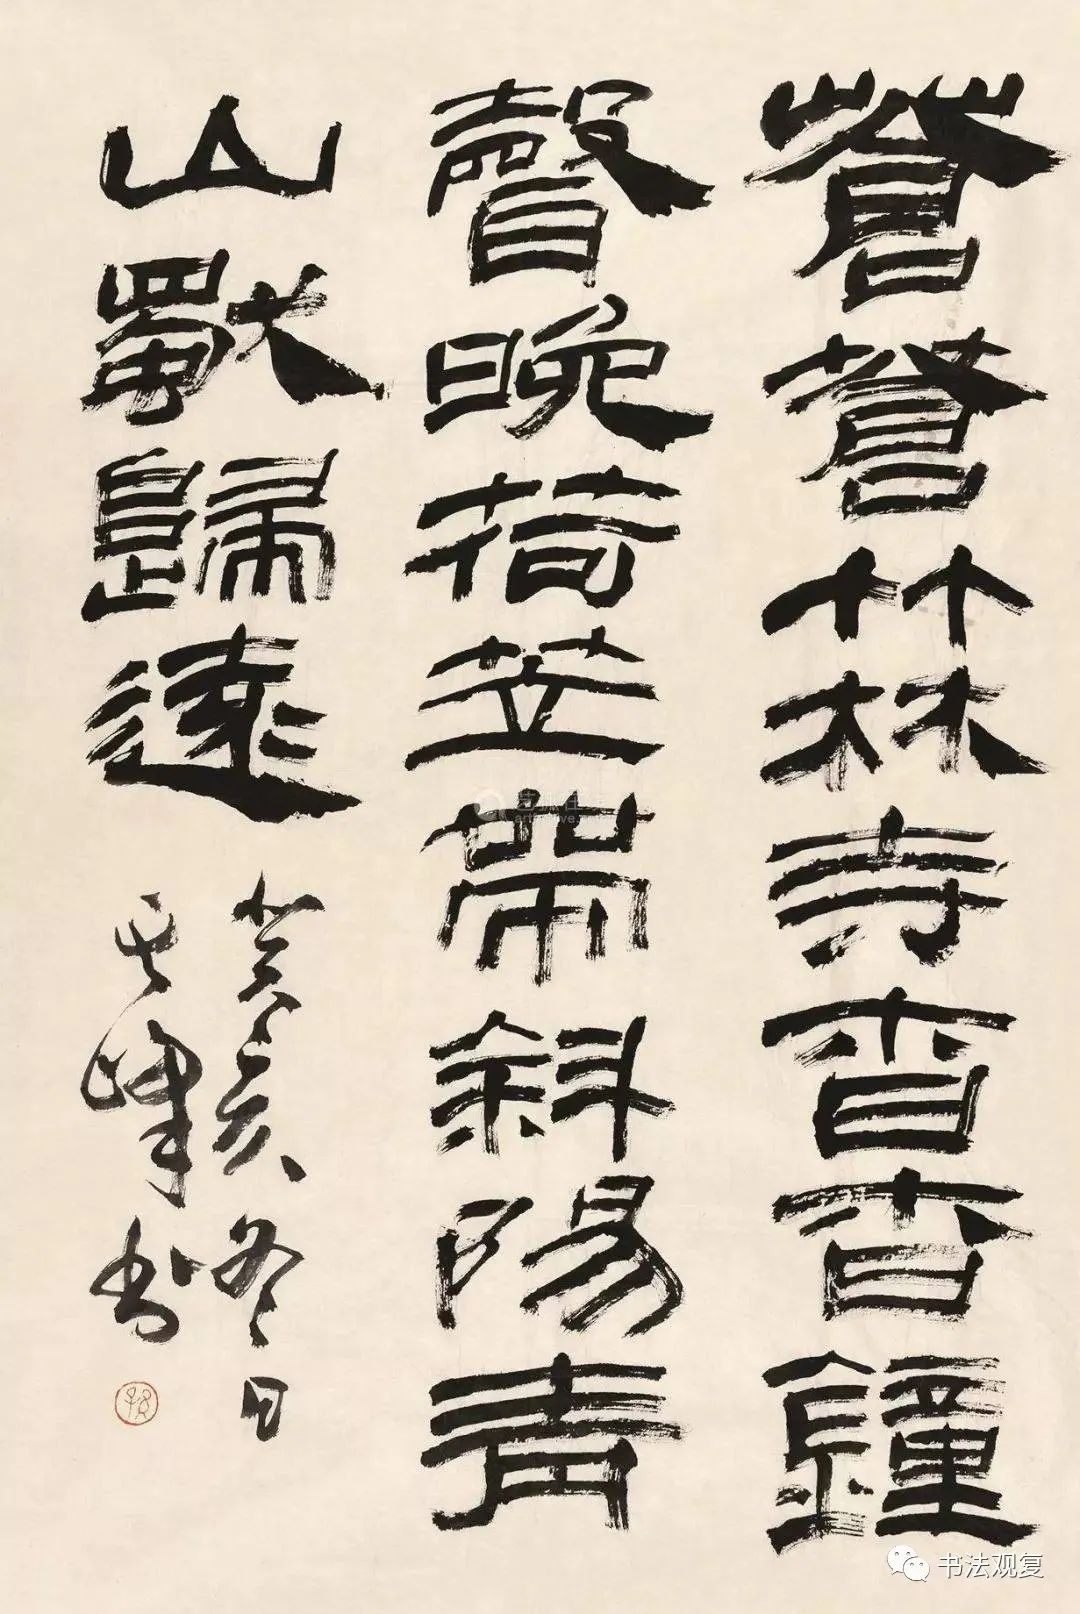 蒼蒼竹林寺杳杳鐘
聲晚荷笠帶斜陽青
山獨歸遠
癸亥冬日
其峰書
书法观复